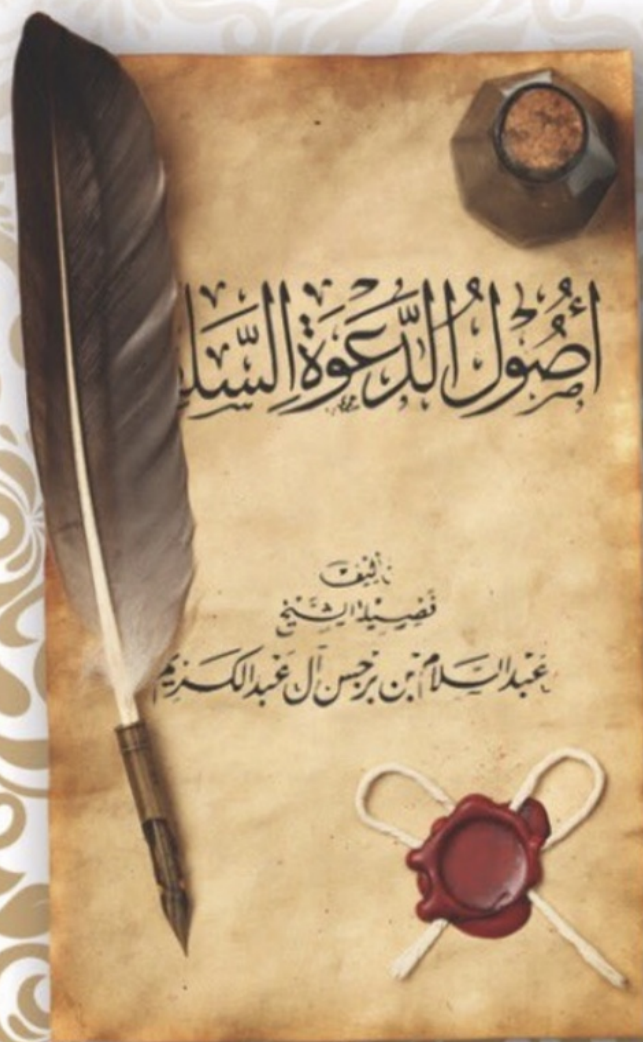 أُصُولُ الدَّعْوَةِ السَّلَ
تأليف
فضيلة الشيخ
عبد السلام بن برجس آل عبد الكريم